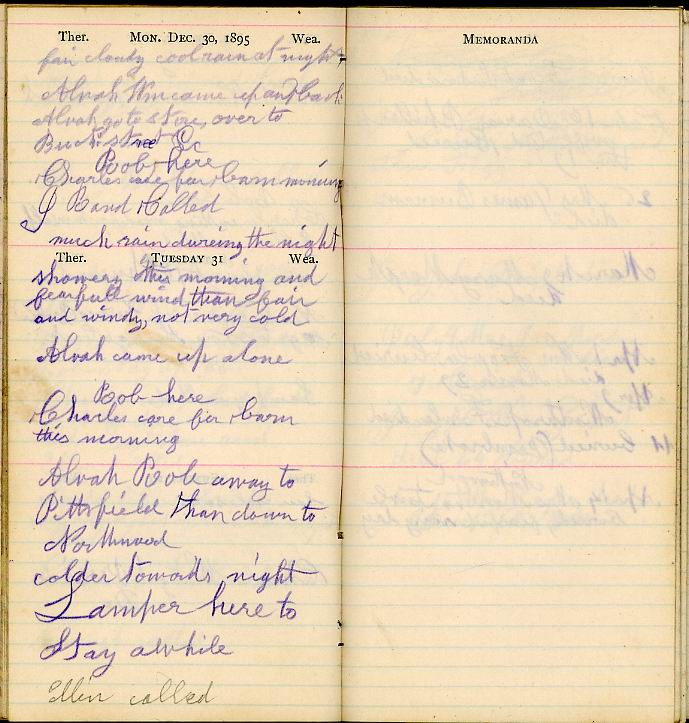 Ther. MON. DEC. 30, 1895 Wea.
fair cloudy cool rain at night
Alvah Wm came up and back
Alvah go to store, over to
Street &c
Bob here
Charles care for barn morning
J Rand Called
much rain dureing the night
Ther. TUESDAY 31 Wea.
showery this morning and
fearfull wind than fair
and windy, not very cold
Alvah came up alone
Bob here
Charles care for barn
this morning
Alvah Bob away to
Pittsfield than down to
Northwood
colder towards night
Lamper here to
Stay awhile
called
MEMORANDA